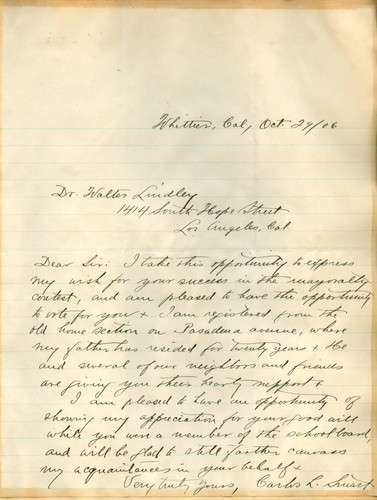 Whittier, Cal, Oct. 29/06
Dr. Walter Lindley
1414 South Hope Street
Los Angeles, Cal
Dear Sir: I take this opportunity to express
my wish for your success in the mayoralty
contest, and am pleased to have the opportunity
to vote for you + I am registered from the
old home section on Pasadena avenue, where
my father has resided for twenty years + He
and several of our neighbors and friends
are giving you their hearty support +
I am pleased to have an opportunity of
showing my appreciation for your good will
while you were a member of the school board,
and will be glad to still farther canvass
my acquaintances in your behalf +
Very truly Yours, Carlos L.